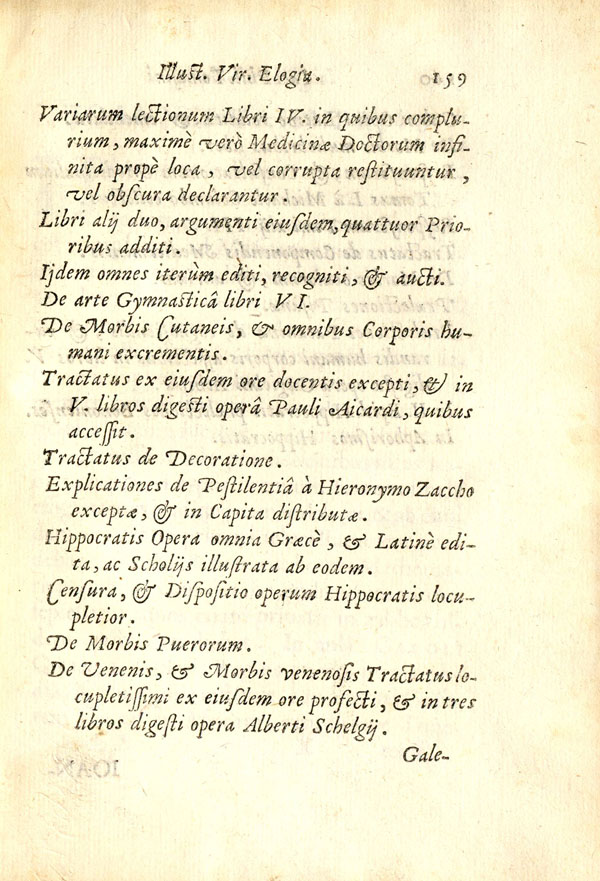 Illust. Vir. Elogia. 159
Variarum lectionum Libri IV. in quibus complu-
rium, maximè verò Medicinæ Doctorum infi-
nita propè loca, vel corrupta restituuntur,
vel obscura declarantur.
Libri alij duo, argumenti eiusdem, quattuor Prio-
ribus additi.
Ijdem omnes iterùm editi, recogniti, & aucti.
De arte Gymnasticâ libri VI.
De Morbis Cutaneis, & omnibus Corporis hu-
mani excrementis.
Tractatus ex eiusdem ore docentis excepti, & in
V. libros digesti operâ Pauli Aicardi, quibus
accessit.
Tractatus de Decoratione.
Explicationes de Pestilentiâ à Hieronymo Zaccho
exceptæ, & in Capita distributæ.
Hippocratis Opera omnia Græcè, & Latinè edi-
ta, ac Scholijs illustrata ab eodem.
Censura, & Dispositio operum Hippocratis locu-
pletior.
De Morbis Puerorum.
De Venenis, & Morbis venenosis Tractatus lo-
cupletissimi ex eiusdem ore profecti, & in tres
libros digesti opera Alberti Schelgij.
Gale-